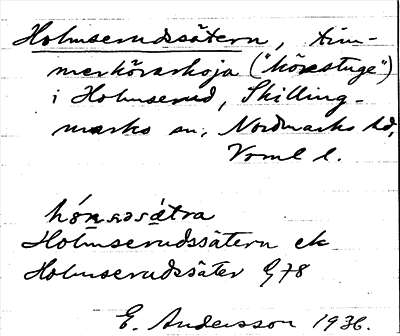 Holmserudssätern, tim-
merkörarkoja ("körestuge")
i Holmserud, Skilling-
marks sn, Nordmarks hd,
Värml l.
Holmserudssätern ek
Holmserudssäter G78
E. Andersson 1936.